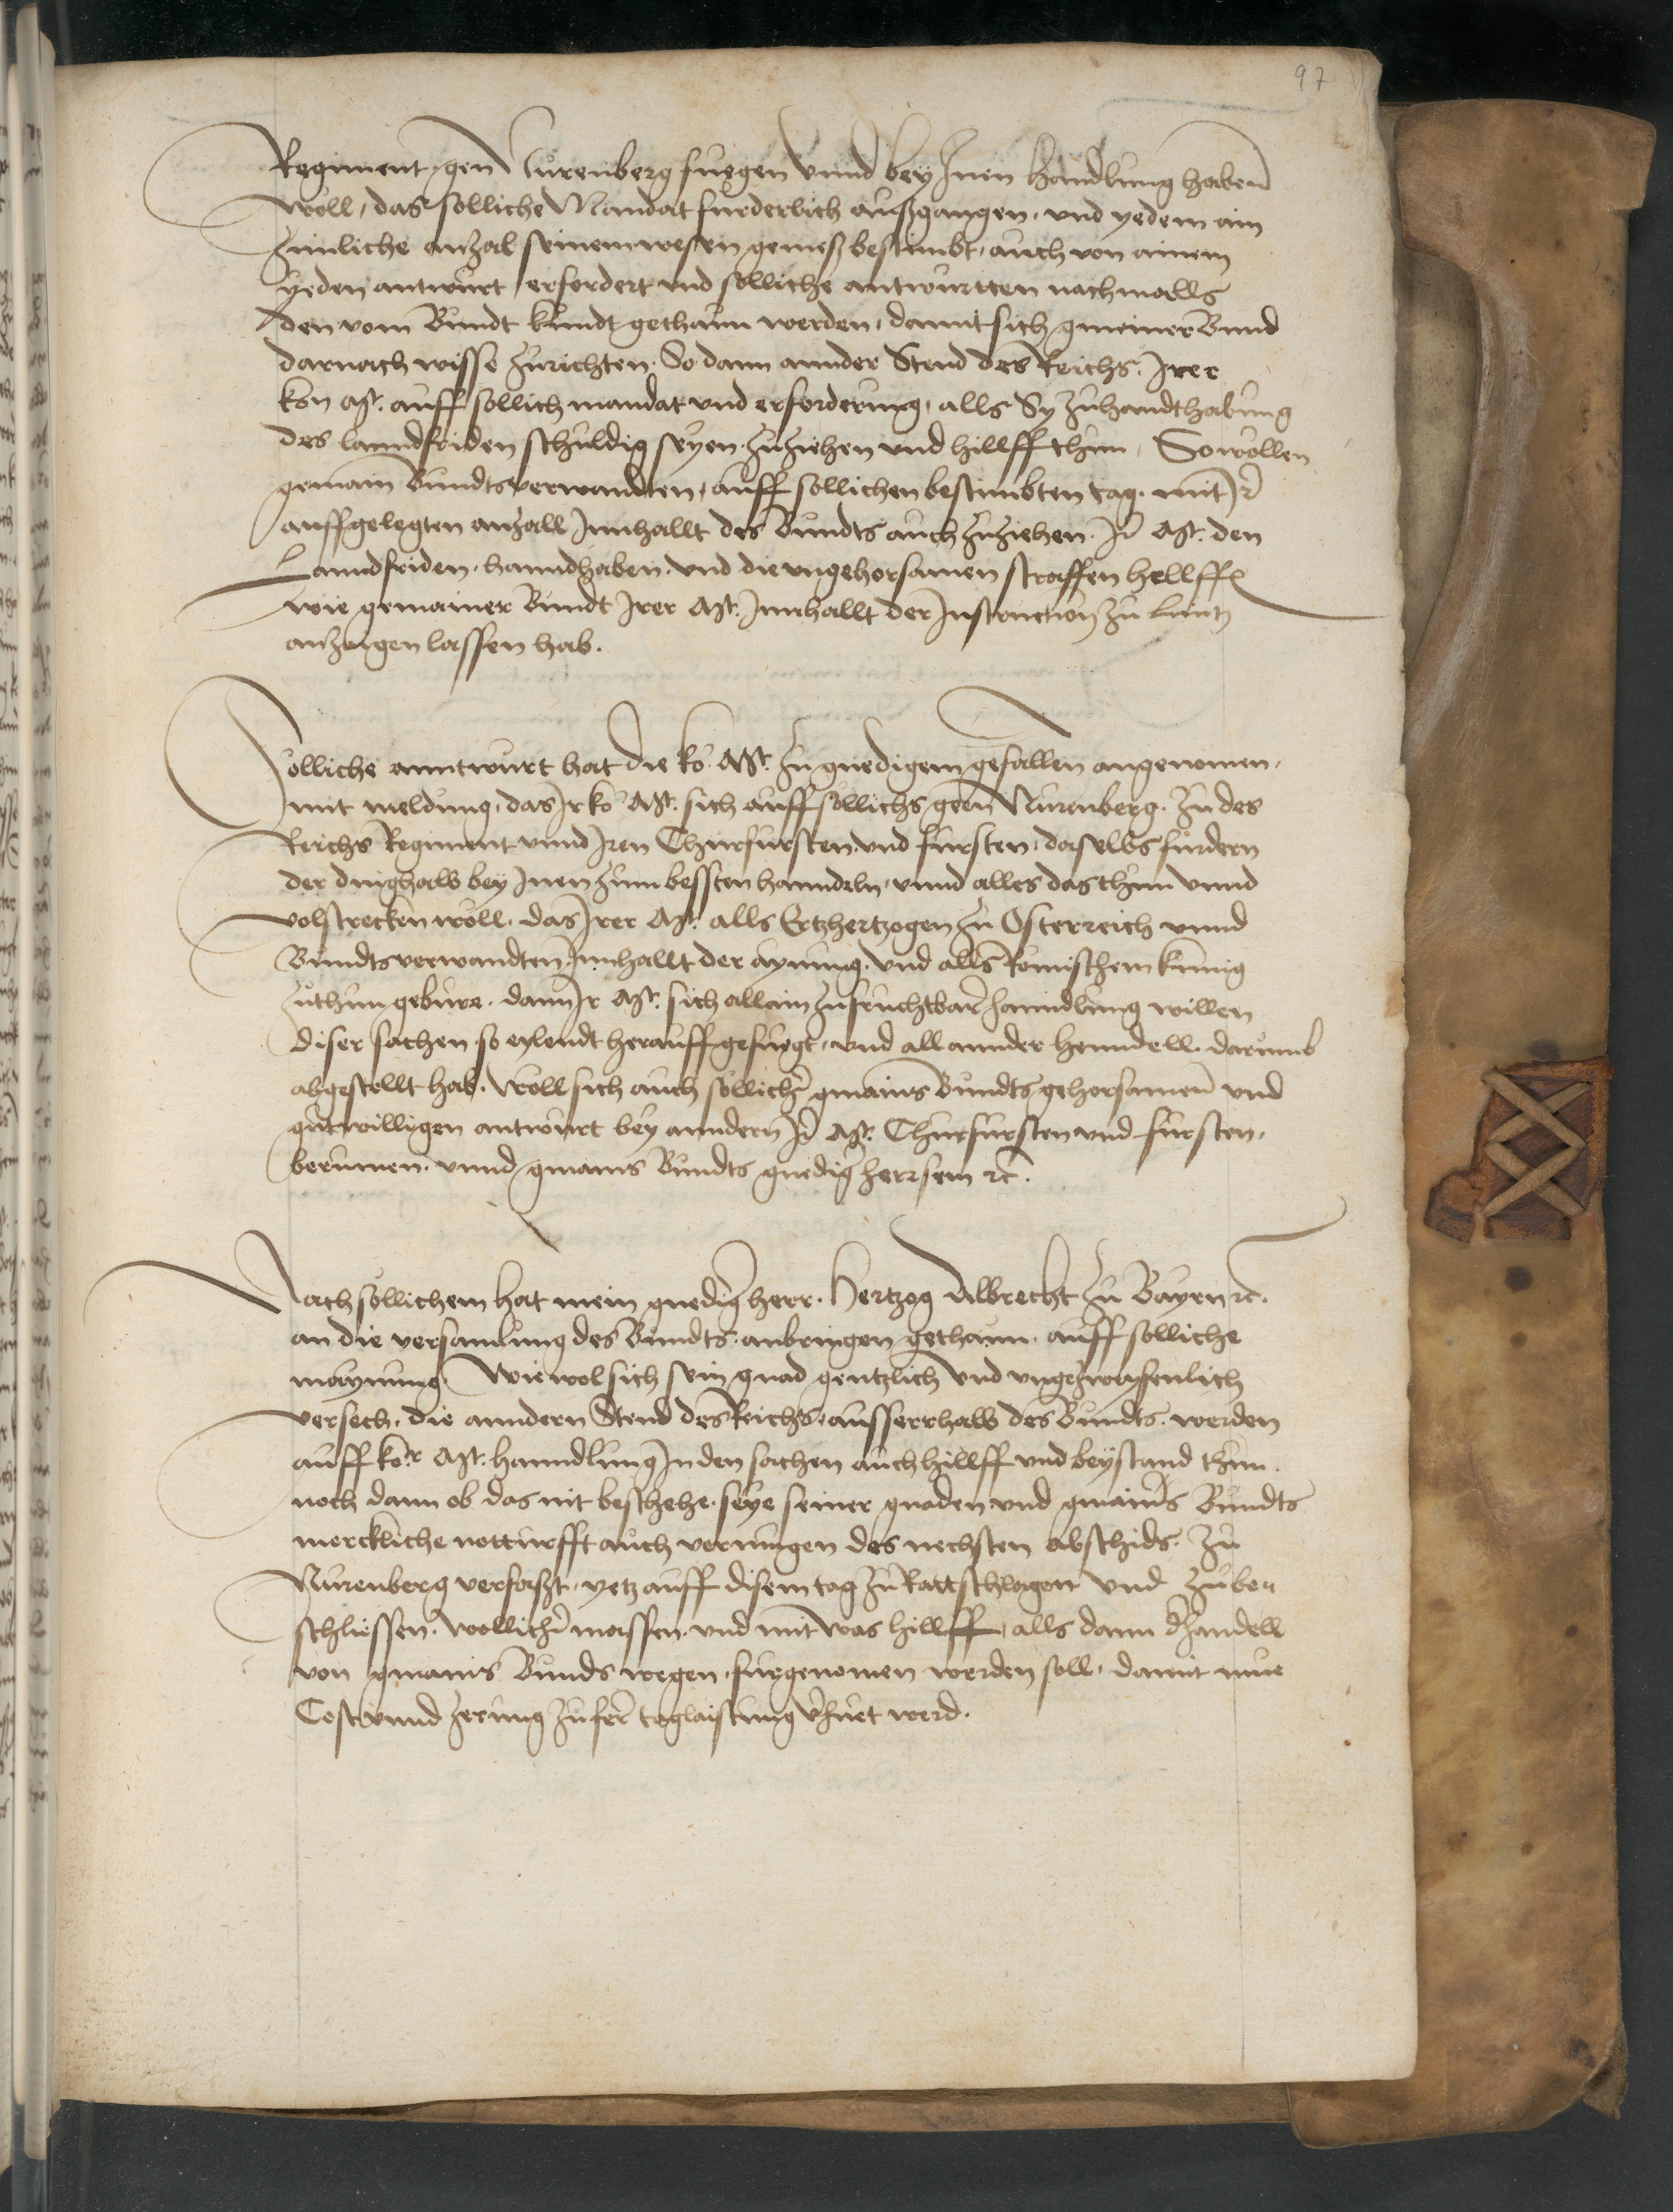 97
Regiment gen Nurenberg fuegen vnnd bey Inen handlung haben
woll, das solliche Mandat furderlich außgangen, vnd yedem ain
zimliche anzal seinem wesen gemeß bestimbt, auch von ainem
yeden antwurt erfordert vnd solliche antwurtten nachmalls
den vom Bundt kundt gethann werden, damit sich gmeiner Bund
darnach wisse zurichten. So dann annder Stend des Reichs. Irer
kön Mt. auff sollich mandat vnd erforderung, alls Sy zuhandthabung
des lanndfriden schuldig seyen zuziehen vnd hillff thun, So wöllen
gemain Bundtsverwandten, auff sollichen bestimbten tag. mit Ir̄
auffgelegten anzall Innhallt des Bundts auch zuziehen. Ir̄ Mt. den
Lanndfriden. hanndhaben. vnd die vngehorsamen straffen hellffen
wie gemainer Bundt Irer Mt. Innhallt der Instruction zu Lintz
anzaigen lassen hab.
Solliche anntwurt hat die kö. Mt. zu gnedigem gefallen angenomen.
mit meldung, das Ir kö Mt. sich auff söllichs geen Nurenberg. zu des
Reichs Regiment vnnd Iren Churfursten vnd fursten, daselbs furdern
der dinghalb bey Inen zum bessten hanndeln, vnnd alles das thun vnnd
volstrecken wöll. das Irer Mt. alls Ertzhertzogen zu Österreich vnnd
Bundtsverwandten. Innhallt der aynung. vnd alls Römischem kunig
zuthun gebure. dann Ir Mt. sich allain zu fruchtbar̄ hanndlung willen
diser sachen so eylendt herauff gefuegt, vnd all annder henndell. darumb
abgestellt hab. Wöll sich auch söllich̄ gmains Bundts gehorsamen vnd
gutwilligen antwurt bey anndern Ir̄ Mt. Churfursten vnd fursten.
berumen. vnnd gmains Bundts gnediḡ herr sein rc.
Nach söllichem hat mein gnediḡ herr. Hertzog Albrecht zu Bayrn rc.
an die versamlung des Bundts. anbringen gethann. auff solliche
maynung. Wiewol sich sein gnad gentzlich vnd vngezweyfenlich
versech. die anndern Stend des Reichs, ausserrhalb des Bundts. werden
auff kör Mt. hanndlung In den sachen auch hillff vnd beystand thun.
noch dann ob das nit beschehe. seye seiner gnaden vnd gmains Bundts
merckliche notturfft auch vermugen des nechsten abschids. zu
Nurenberg verfaszt, yetz auff disem tag zu Rattschlagen vnd zube,,
schliessen. wöllich̄ massen. vnd mit was hillff, alls dann d̄ handell
von gmains Bunds wegen, furgenomen werden soll, damit nüe
Cost vnnd zerung zu fer̄ taglaistung v̄huet werd.